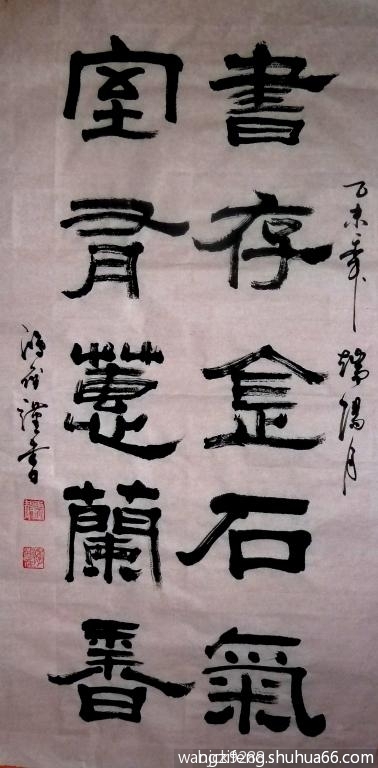 乙未年 端陽月
書存金石氣
室有蕙蘭香
謹書
.shuhua66.com